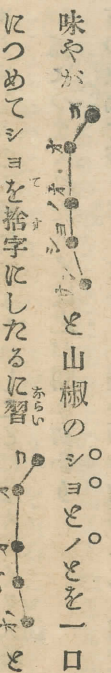 味やが と山椒のショとノとを一口
につめてショを捨字にしたるに習 と
ならい
てす